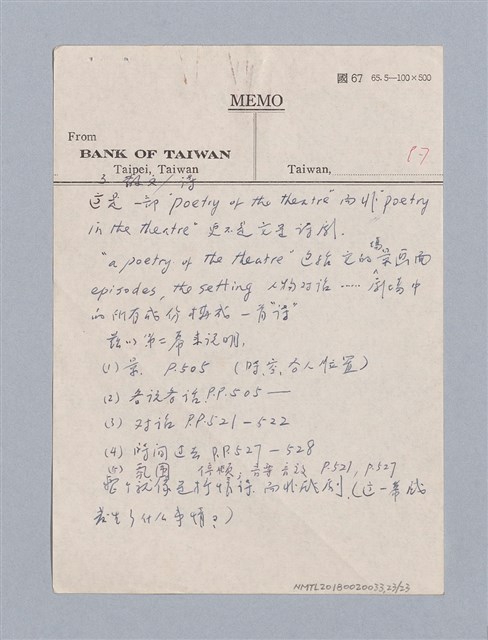 國 67 65.5—100×500
MEMO
From
BANK OF TAIWAN
Taipei, Taiwan
Taiwan,
3. 散文/诗
这是一部 "poetry of the theatre" 而非 "poetry
in the theatre" 更不是诗剧.
"a poetry of the theatre" 包括它的場景画面
episodes, the setting 人物对话 …… 劇場中
的所有成份構成一首"诗"
兹以第二幕来说明.
(1) 景. P.505 (时空, 各人位置)
(2) 各说各话 P.P.505—
(3) 对话 P.P.521—522
(4) 時间过去 P.P.527—528
(5) 氛围 停頓, 音樂音效 P.521, p.527
整个就像是抒情詩 而非戏剧. (这一幕戏
發生了什么事情?)
NMTL20180020033,23/23